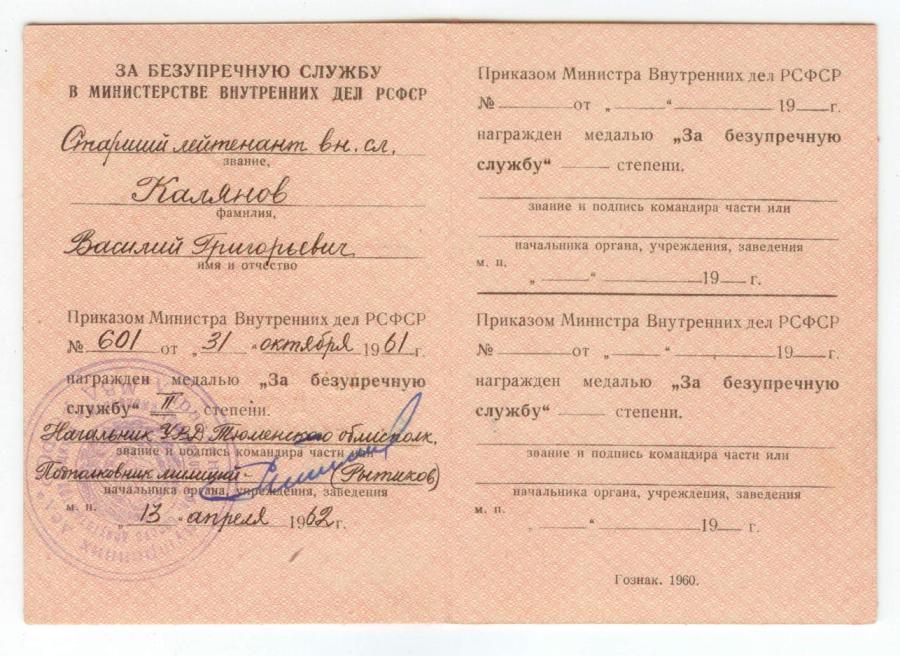 ЗА БЕЗУПРЕЧНУЮ СЛУЖБУ
В МИНИСТЕРСТВЕ ВНУТРЕННИХ ДЕЛ РСФСР
Старший лейтенант вн. сл.
звание,
Калянов
фамилия,
Василий Григорьевич
имя и отчество
Приказом Министра Внутренних дел РСФСР
№ 601 от „31“ октября 1961 г.
награжден медалью „За безупречную
службу“ II степени.
Начальник УВД Тюменского облисполк.
звание и подпись командира части или
Подполковник милиции- (Рытиков)
начальника органа, учреждения, заведения
м. п.
„13“ апреля 1962 г.
Приказом Министра Внутренних дел РСФСР
№ ____ от „____“ ____ 19__ г.
награжден медалью „За безупречную
службу“ ____ степени.
звание и подпись командира части или
начальника органа, учреждения, заведения
м. п.
„____“ ____ 19__ г.
Приказом Министра Внутренних дел РСФСР
№ ____ от „____“ ____ 19__ г.
награжден медалью „За безупречную
службу“ ____ степени.
звание и подпись командира части или
начальника органа, учреждения, заведения
м. п.
„____“ ____ 19__ г.
Гознак. 1960.